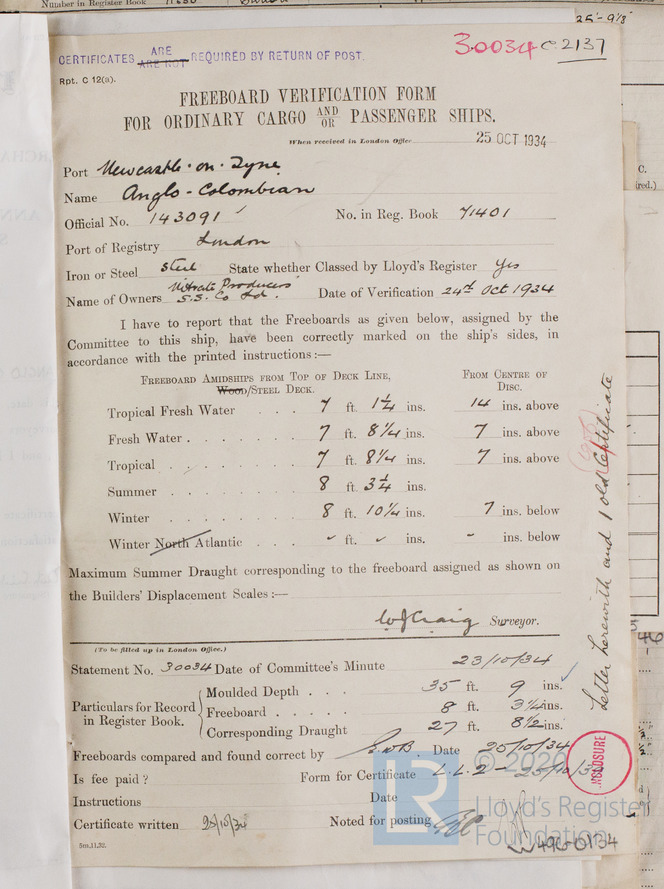 Number in Register Book
25'-9⅛
CERTIFICATES ARE ARE NOT REQUIRED BY RETURN OF POST.
30034 C.2137
Rpt. C 12(a).
FREEBOARD VERIFICATION FORM
FOR ORDINARY CARGO AND/OR PASSENGER SHIPS.
When received in London Office 25 OCT 1934
Port Newcastle-on-Tyne
Name Anglo-Colombian
Official No. 143091 No. in Reg. Book 71401
Port of Registry London
Iron or Steel Steel State whether Classed by Lloyd's Register Yes
Name of Owners Nitrate Producers S.S. Co Ltd. Date of Verification 24th Oct 1934
I have to report that the Freeboards as given below, assigned by the
Committee to this ship, have been correctly marked on the ship's sides, in
accordance with the printed instructions:—
FREEBOARD AMIDSHIPS FROM TOP OF DECK LINE, FROM CENTRE OF
WOOD/STEEL DECK. DISC.
Tropical Fresh Water . . . 7 ft. 1¼ ins. 14 ins. above
Fresh Water . . . . . . 7 ft. 8¼ ins. 7 ins. above
Tropical . . . . . . . 7 ft. 8¼ ins. 7 ins. above
Summer . . . . . . . 8 ft. 3¼ ins.
Winter . . . . . . . 8 ft. 10¼ ins. 7 ins. below
Winter North Atlantic . . . - ft. - ins. - ins. below
Maximum Summer Draught corresponding to the freeboard assigned as shown on
the Builders' Displacement Scales:—
WJCraig Surveyor.
(To be filled up in London Office.)
Statement No. 30034 Date of Committee's Minute 23/10/34
Particulars for Record in Register Book.
Moulded Depth . . . 35 ft. 9 ins.
Freeboard . . . . . 8 ft. 3¼ ins.
Corresponding Draught 27 ft. 8½ ins.
Freeboards compared and found correct by Date 25/10/34
Is fee paid? Form for Certificate L.L.2 - 25/10/34
Instructions Date
Certificate written 25/10/34 Noted for posting
5m,11,32.
Letter herewith and 1 old Certificate
ENCLOSURE
© 2020
LR
Lloyd's Register
Foundation
W496-0134